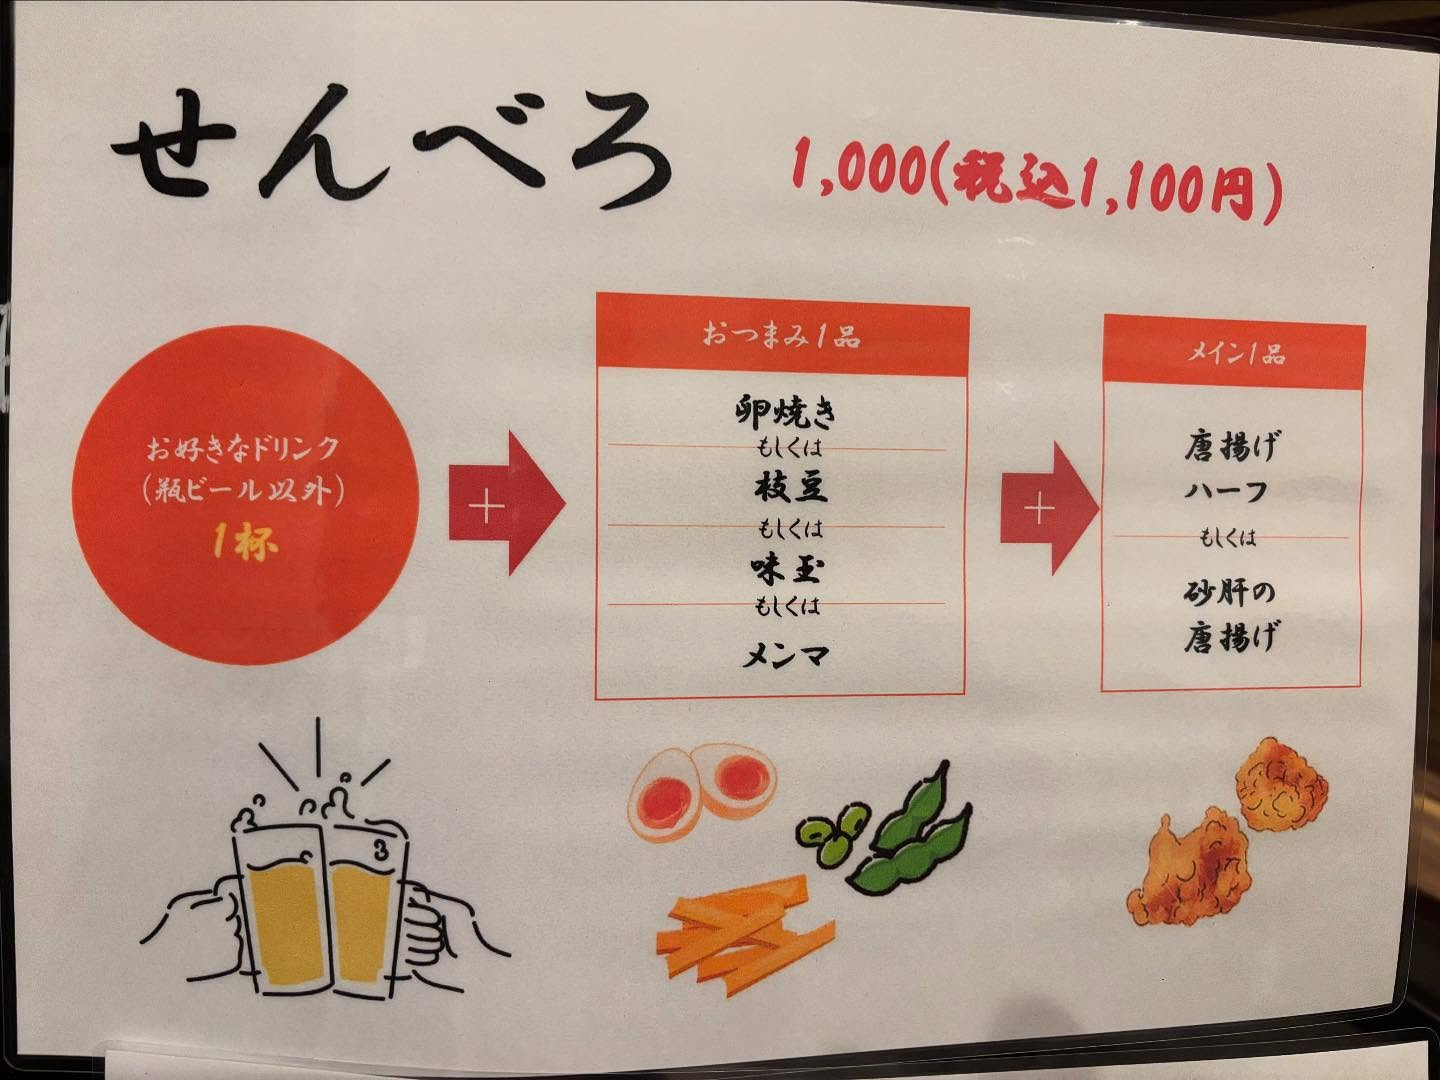 せんべろ
1,000(税込1,100円)
お好きなドリンク
(瓶ビール以外)
1杯
+
おつまみ1品
卵焼き
もしくは
枝豆
もしくは
味玉
もしくは
メンマ
+
メイン1品
唐揚げ
ハーフ
もしくは
砂肝の
唐揚げ